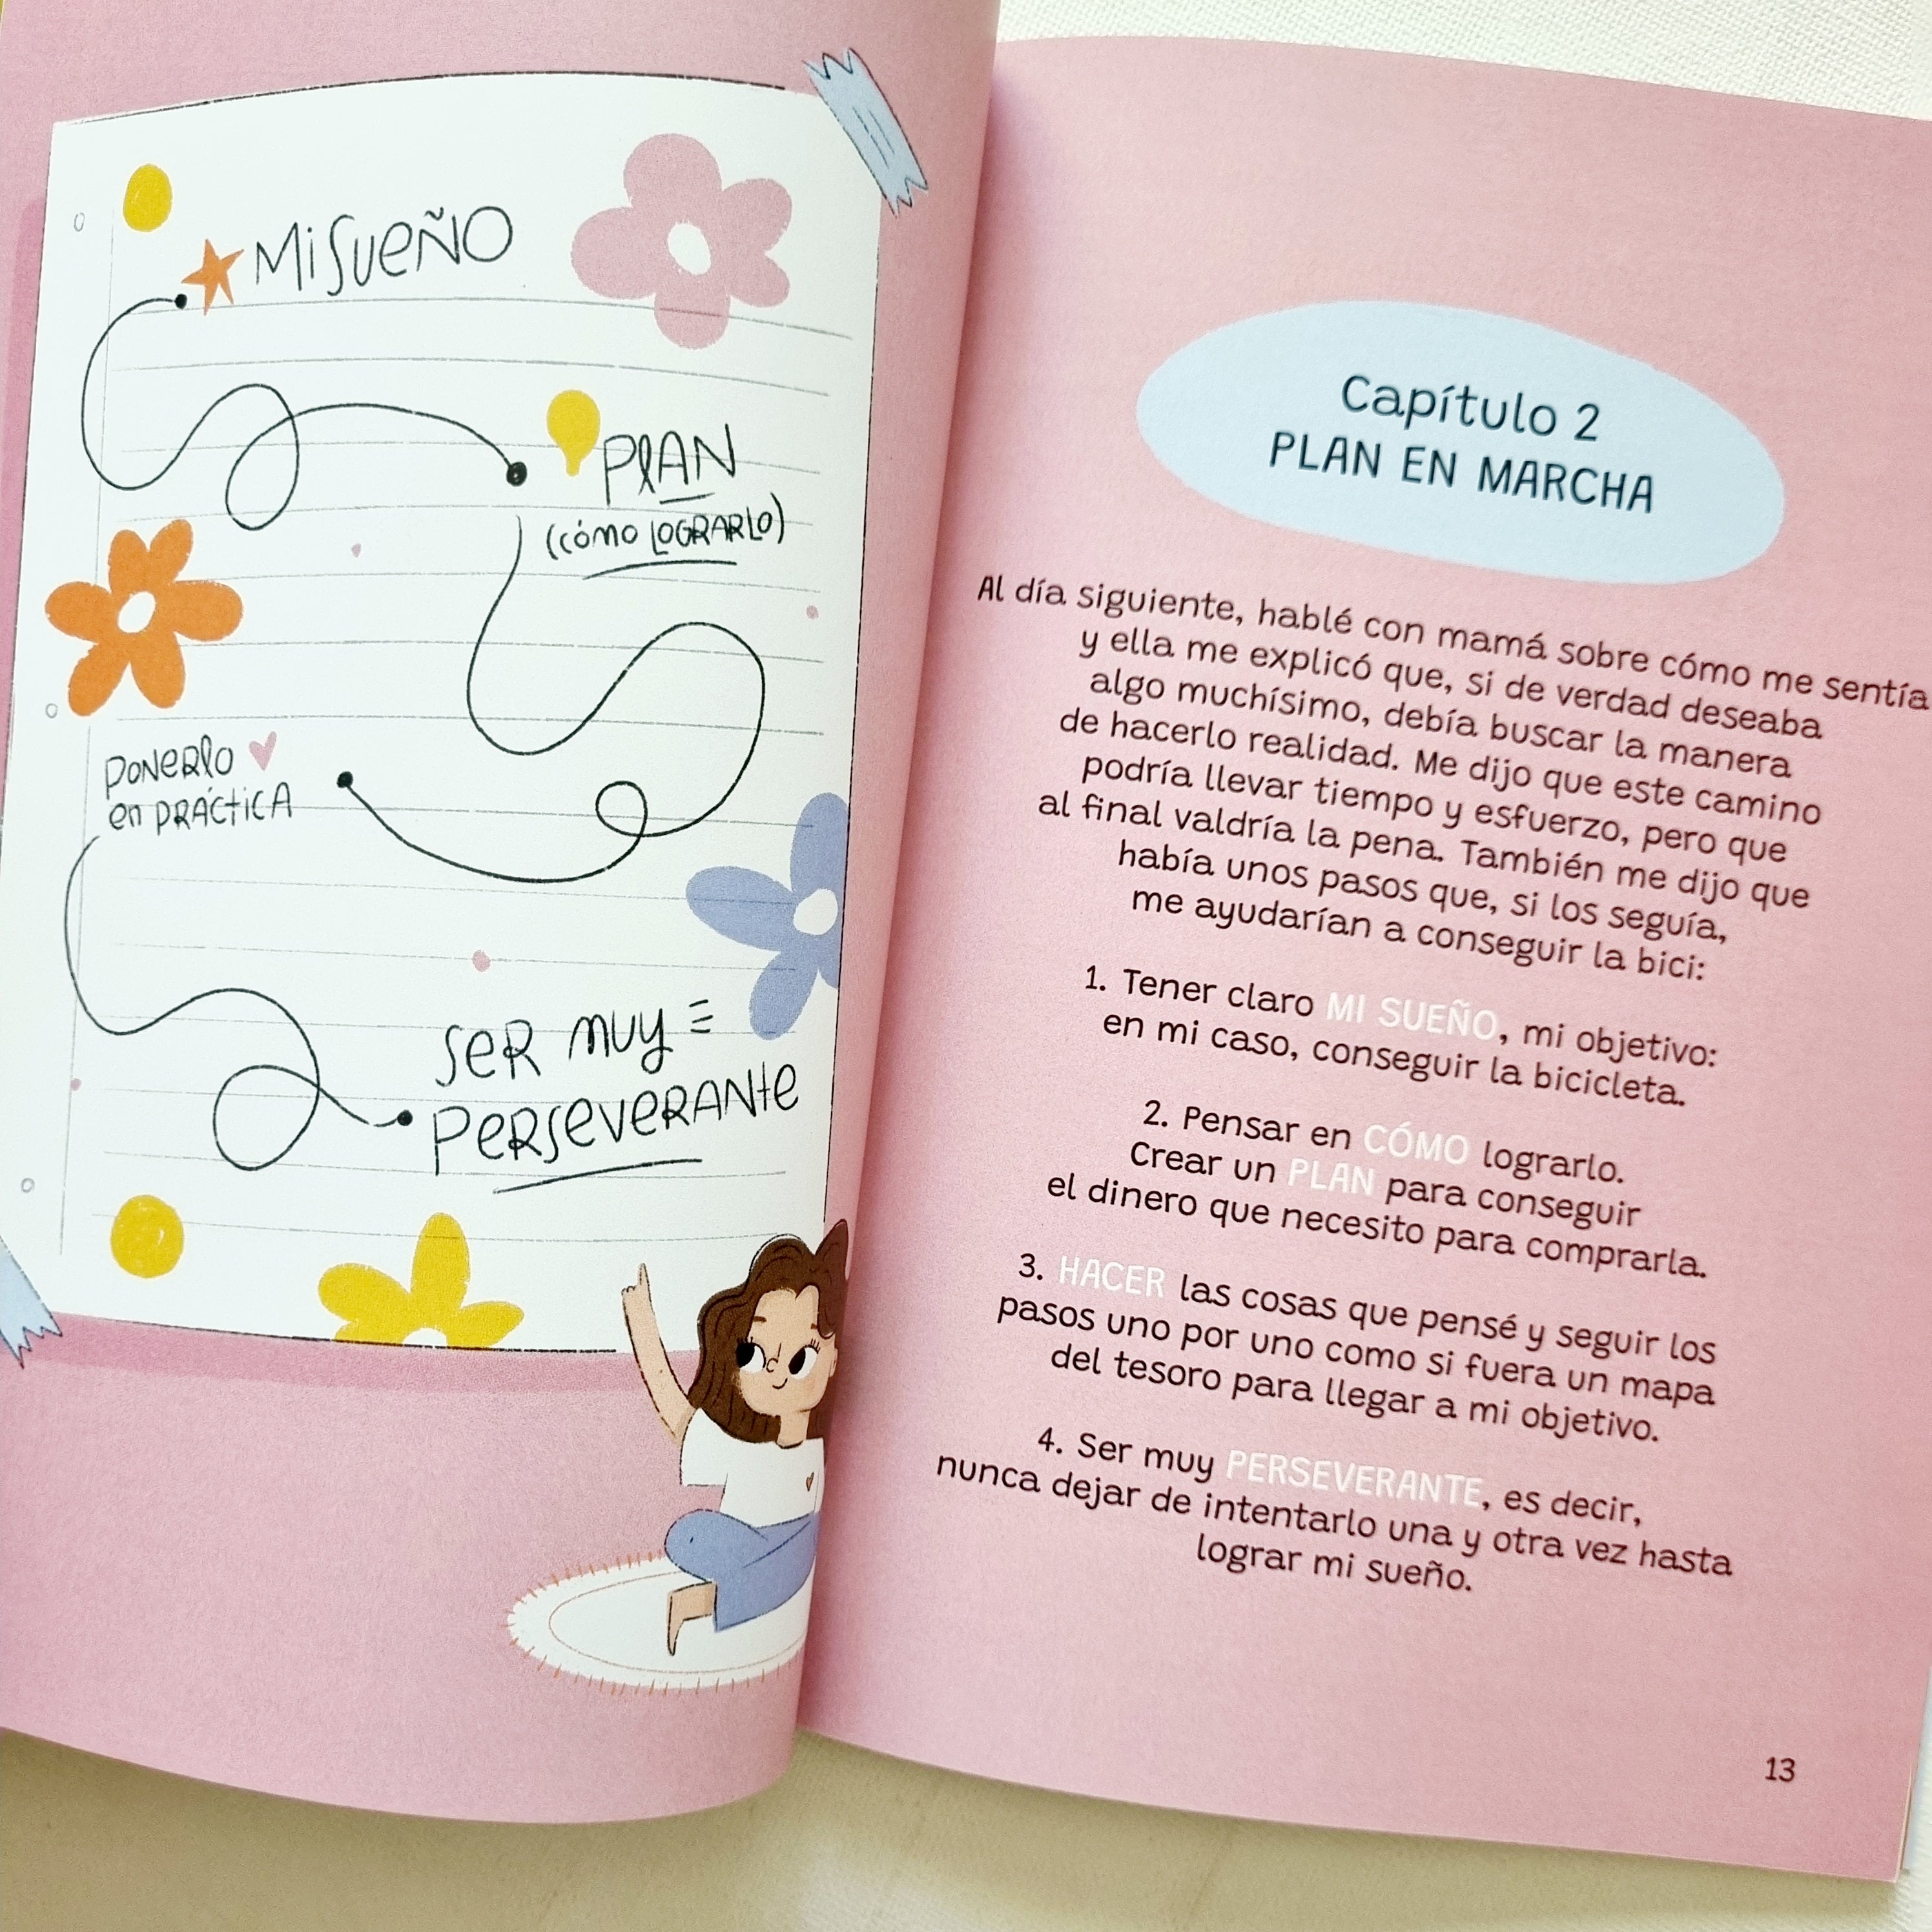 MI SUEÑO
PLAN
(CÓMO LOGRARLO)
PONERLO
en PRÁCTICA
SER MUY
PERSEVERANTE
Capítulo 2
PLAN EN MARCHA
Al día siguiente, hablé con mamá sobre cómo me sentía
y ella me explicó que, si de verdad deseaba
algo muchísimo, debía buscar la manera
de hacerlo realidad. Me dijo que este camino
podría llevar tiempo y esfuerzo, pero que
al final valdría la pena. También me dijo que
había unos pasos que, si los seguía,
me ayudarían a conseguir la bici:
1. Tener claro MI SUEÑO, mi objetivo:
en mi caso, conseguir la bicicleta.
2. Pensar en CÓMO lograrlo.
Crear un PLAN para conseguir
el dinero que necesito para comprarla.
3. HACER las cosas que pensé y seguir los
pasos uno por uno como si fuera un mapa
del tesoro para llegar a mi objetivo.
4. Ser muy PERSEVERANTE, es decir,
nunca dejar de intentarlo una y otra vez hasta
lograr mi sueño.
13